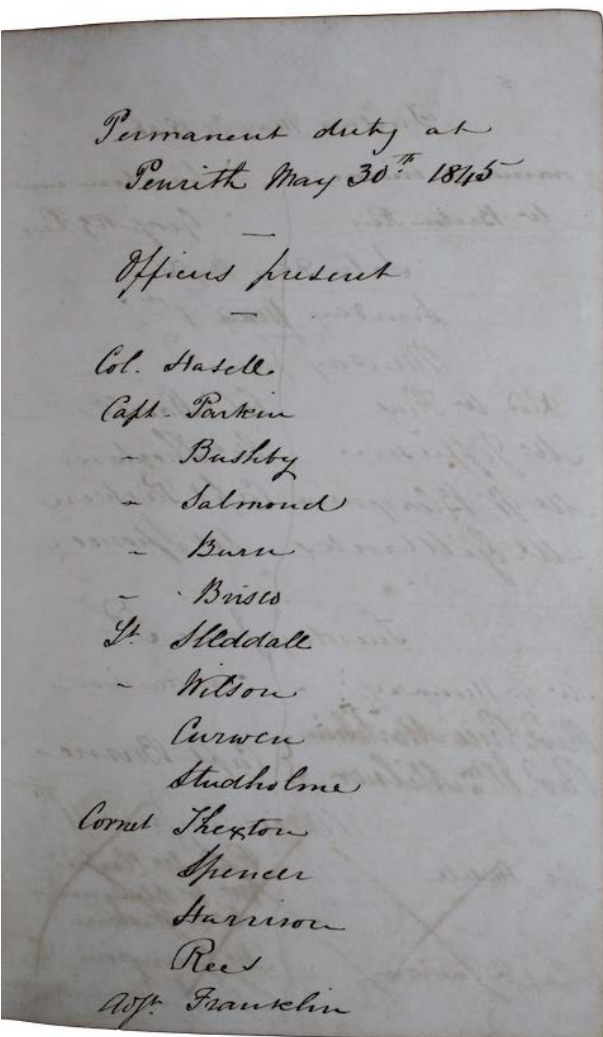 Permanent duty at
Penrith May 30th 1845
—
Officers present
—
Col. Hasell.
Capt. Parkin
" Bushby
" Salmond
" Burn
" Brisco
Lt. Sleddall
" Wilson
Curwen
Studholme
Cornet Thexton
Spencer
Harrison
Rees
Adjt. Franklin